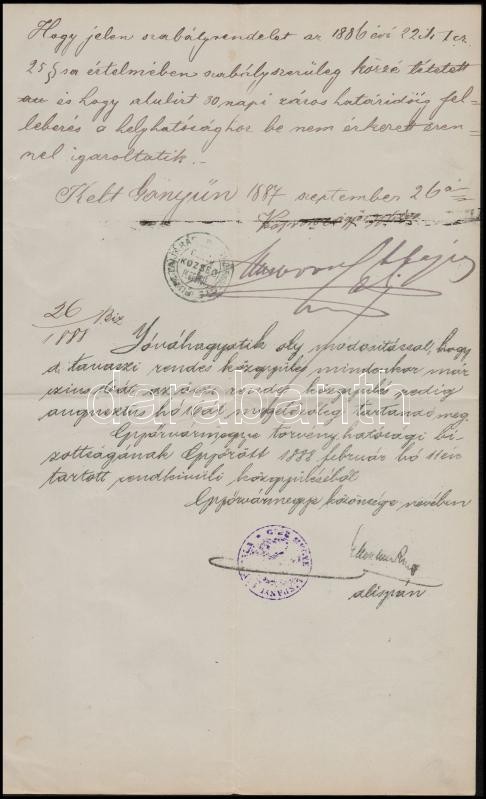 Hogy jelen szabályrendelet az 1886 évi 22ik t cz
25 § sa értelmében szabályszerüleg közzé tétetett
és hogy alulirt 30 napi záros határidőig fel-
lebezés a helyhatósághoz be nem érkezett ezen-
nel igazoltatik.-
Kelt Gönyün 1887 szeptember 26 á
KÖZSÉG
26/1888 Biz
Jóváhagyatik oly modositással, hogy
a tavaszi rendes közgyülés mindenkor már
közgyülés pedig
augusztus hóban megelőzőleg tartandó meg.
Győrvármegye törvényhatósági bi-
zottságának Győrött 1888 február hó 11én
tartott rendkivüli közgyüléséből
Győrvármegye közönsége nevében
alispán
darabanth